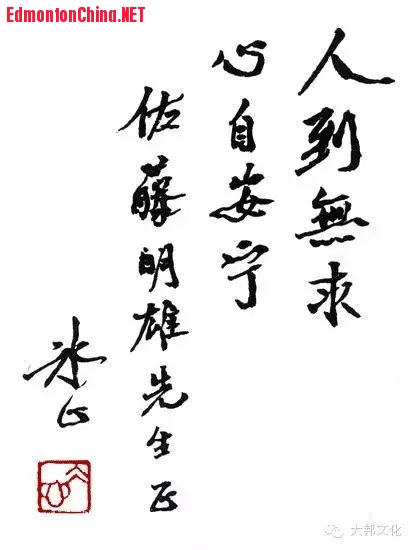 EdmontonChina.NET
人到無求
心自安宁
佐藤明雄先生正
冰心
大邦文化